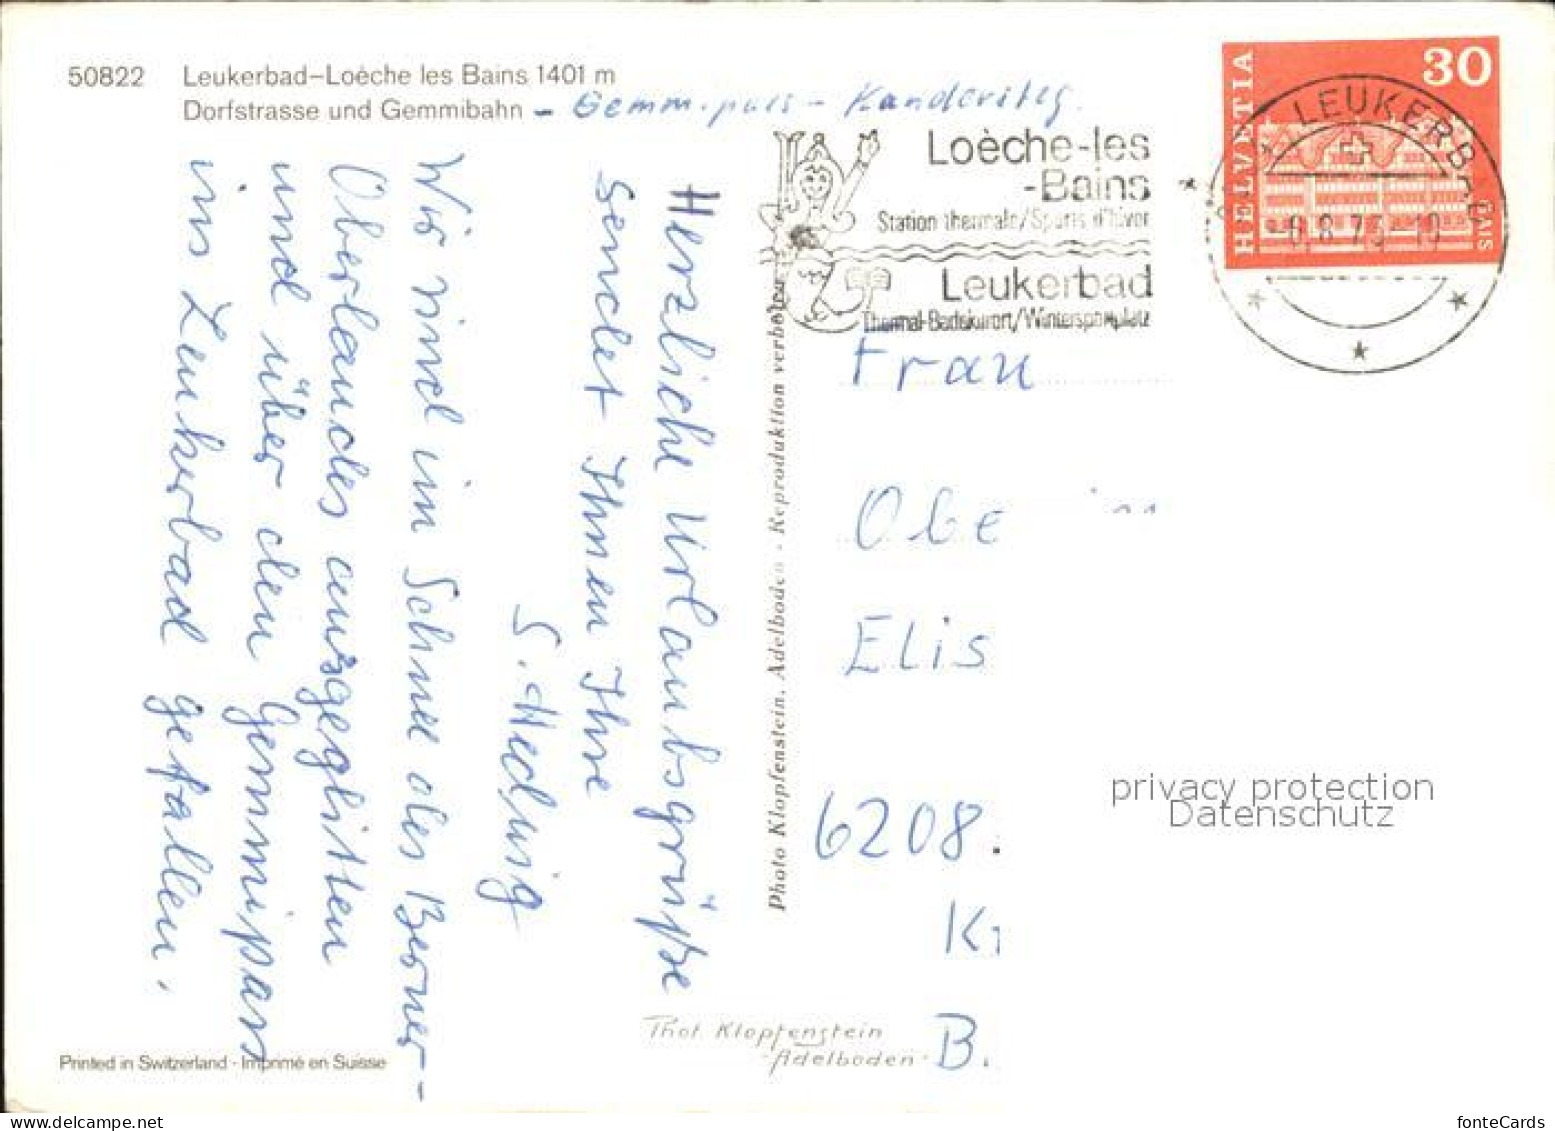 50822 Leukerbad-Loèche les Bains 1401 m
Dorfstrasse und Gemmibahn - Gemmipass - Kandersteg
Loèche-les
-Bains
Station thermale/Sports d'hiver
Leukerbad
Thermal-Badekurort/Wintersportplatz
HELVETIA
30
LEUKERBAD
Herzliche Urlaubsgrüße
sendet Ihnen Ihre
S. Hedwig
Wir sind im Schnee des Berner-
Oberlandes ausgeglitten
und über den Gemmipass
ins Leukerbad gefallen.
Photo Klopfenstein, Adelboden - Reproduktion verboten
Frau
Obe
Elis
6208.
K
B.
Phot. Klopfenstein
-Adelboden-
Printed in Switzerland - Imprimé en Suisse
privacy protection
Datenschutz
fonteCards